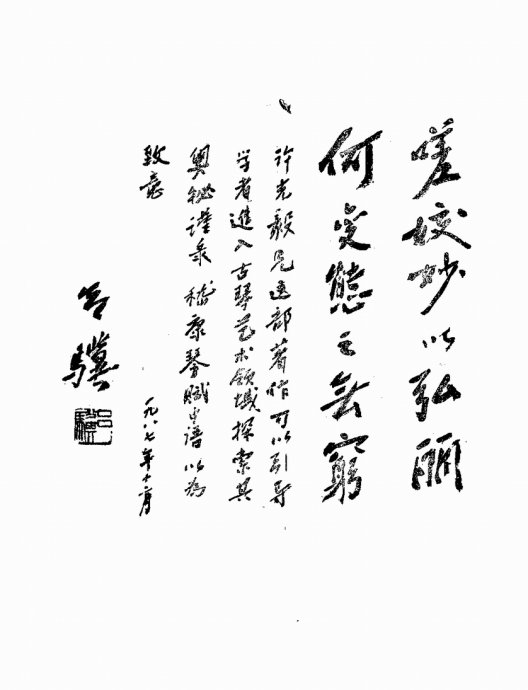 嗟姣妙以弘丽
何变態之無窮
许光毅兄这部著作可以引导
学者進入古琴艺术领域探索其
奥秘谨录 嵇康琴赋中语以为
致意
吕骥
一九八七年十二月